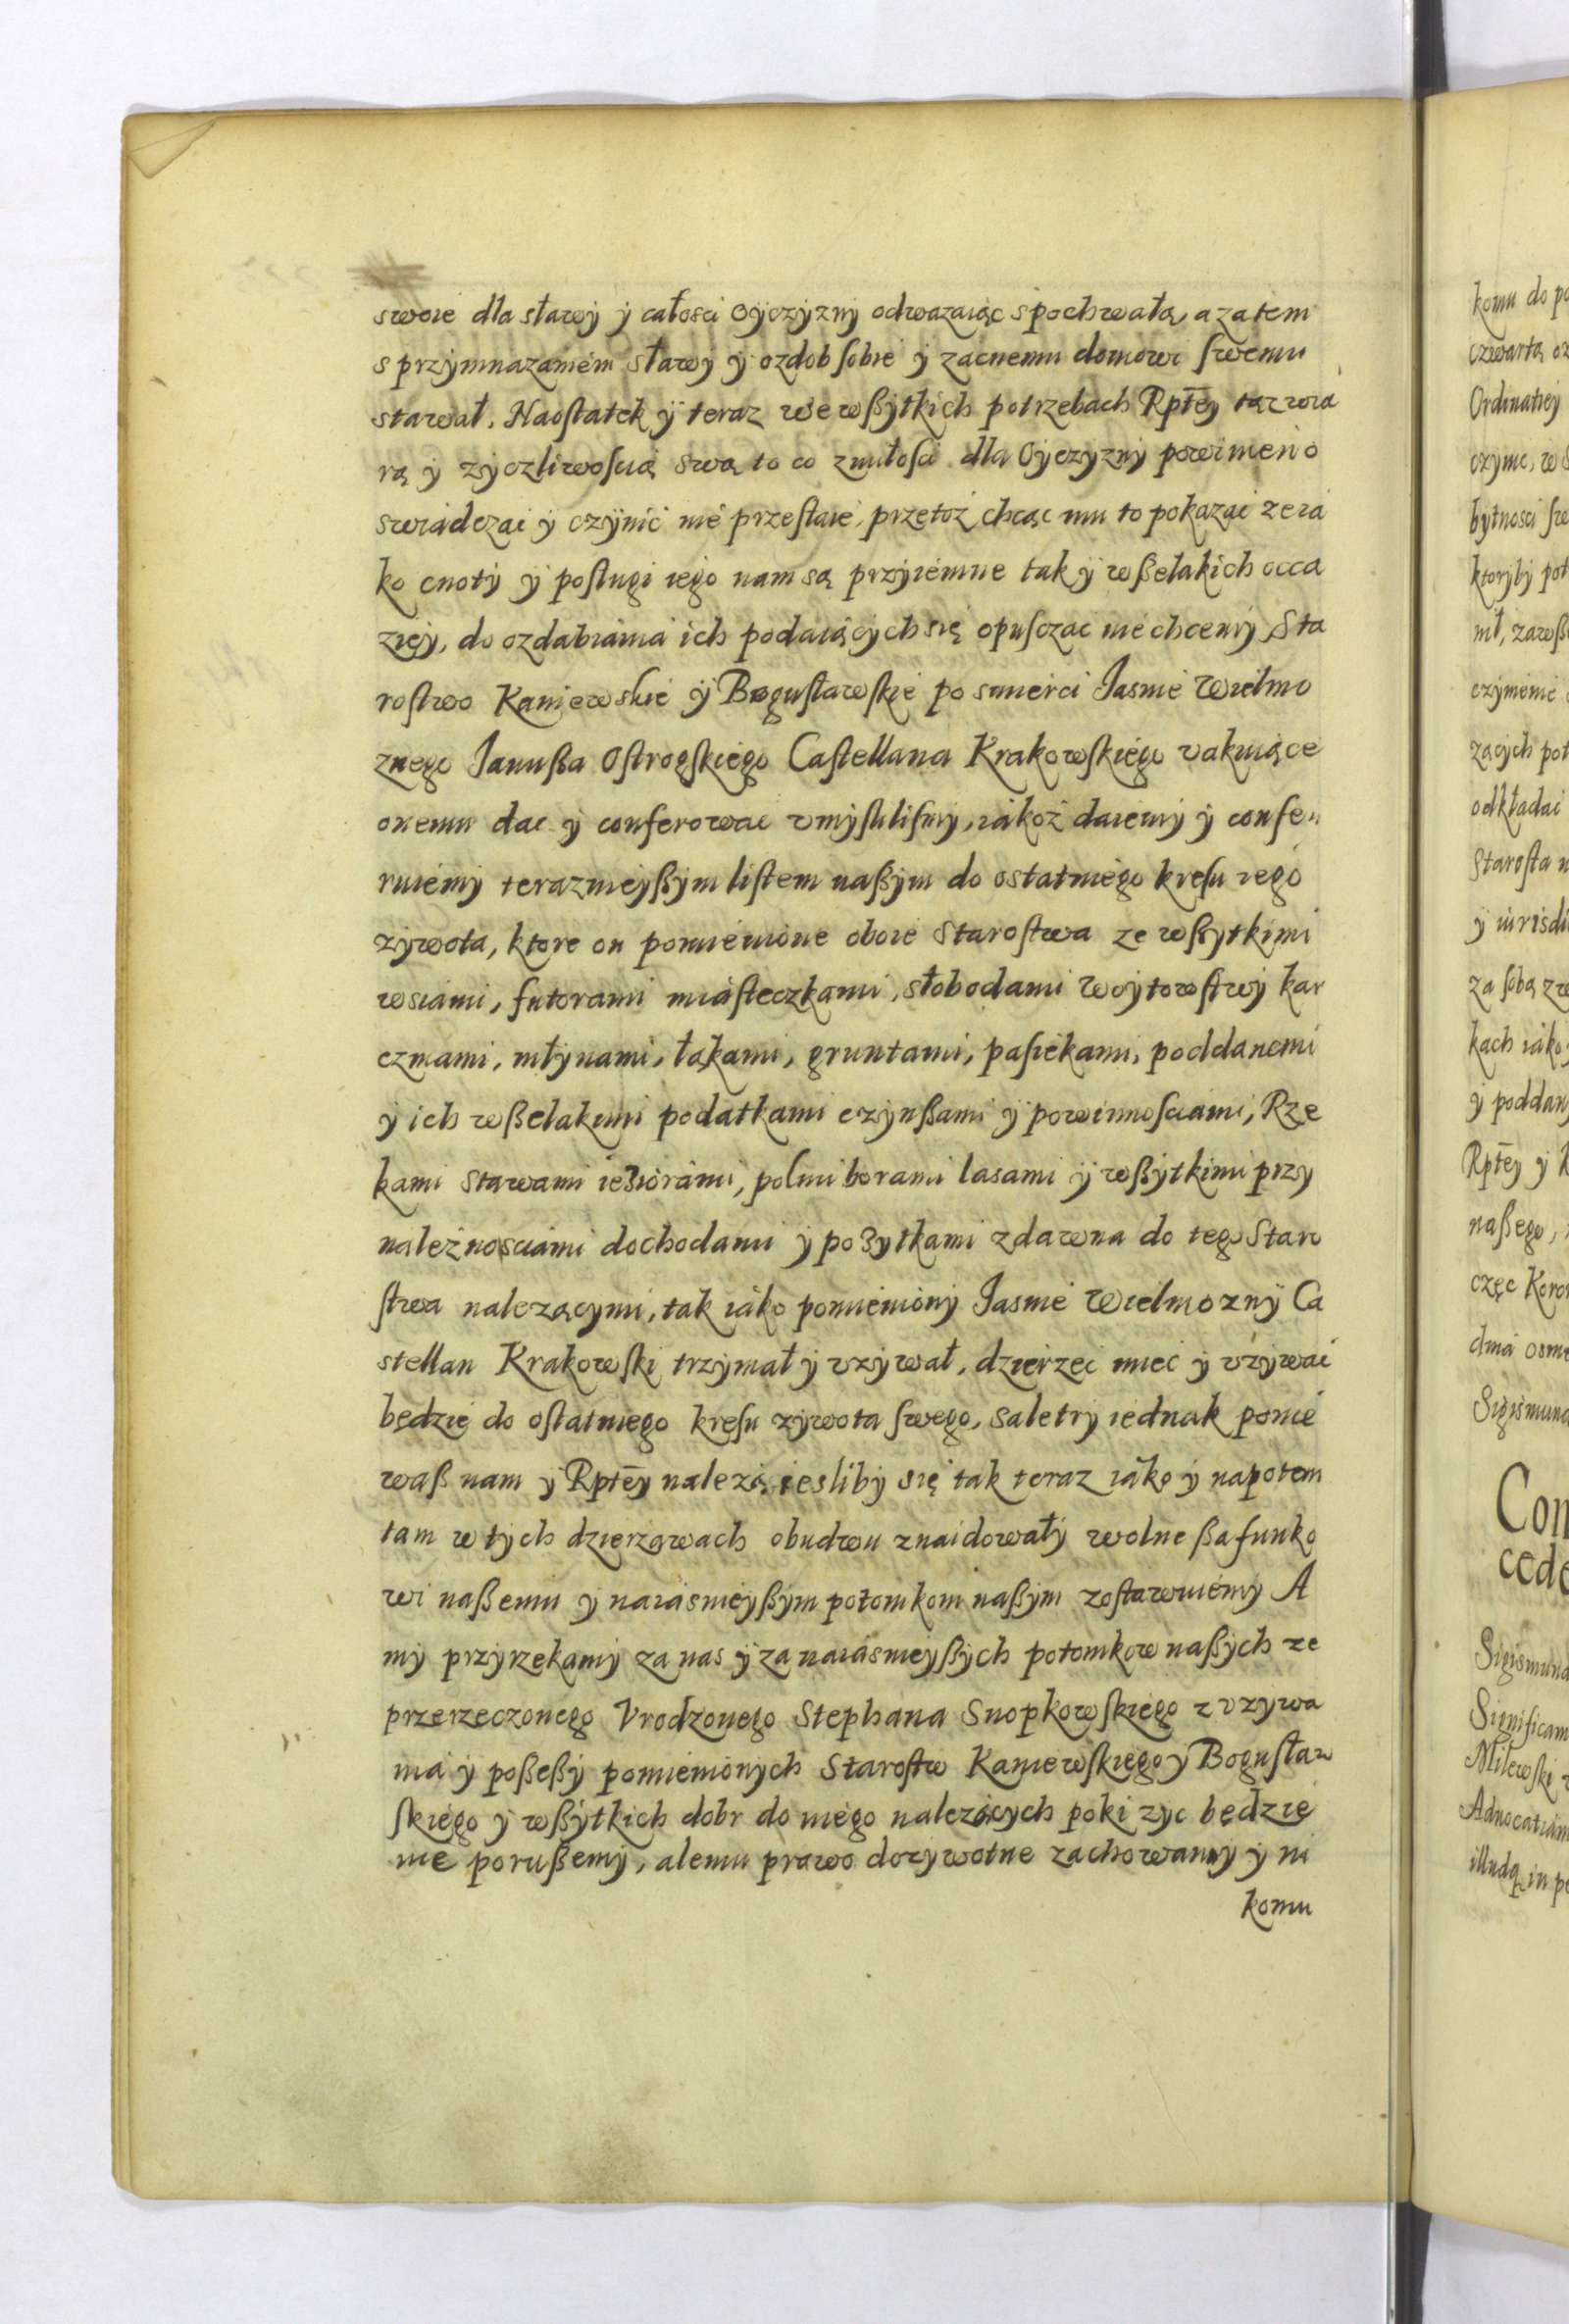 swoie dla sławÿ ÿ całosci oÿczÿznÿ odwazaiąc spochwałą, a zatem
s przÿmnazaniem sławÿ ÿ ozdob sobie ÿ zacnemu domowi swemu
stawał, Naostatek ÿ teraz we wßÿtkich potrzebach Rptēy tąz wia
rą ÿ zÿczliwoscią swą to co zmiłosci dla Oÿczÿznÿ powinien o
swiadczac ÿ czÿnic nie przestaie, przetoż chcąc mu to pokazac ze ia
ko cnotÿ ÿ posługi iego nam są przÿiemne tak ÿ wßelakich occa
zieÿ, do ozdabiania ich podaiącÿch się opusczac nie chcemÿ, Sta
rostwo Kaniewskie ÿ Bogusławskie po smierci Jasnie Wielmo
znego Janußa Ostrogskiego Castellana Krakowskiego vakuiące
onemu dac ÿ conferowac vmÿslilismÿ, iakoż daiemÿ ÿ confe
ruiemÿ terazniejßÿm listem naßÿm do ostatniego kresu iego
zÿwota, ktore on pomienione oboie Starostwa ze wßÿtkimi
wsiami, futorami miasteczkami, słobodami Woÿtowstwÿ kar
czmami, młÿnami, łąkami, gruntami, pasiekami, poddanemi
ÿ ich wßelakimi podatkami czÿnßami ÿ powinnosciami, Rze
kami stawami ieziorami, polmi borami lasami ÿ wßÿtkimi przÿ
należnosciami dochodami ÿ pożytkami zdawna do tego Staro
stwa nalezącymi, tak iako pomienionÿ Jasnie Wielmoznÿ Ca
stellan Krakowski trzÿmał ÿ vzÿwał, dzierzec miec ÿ vzÿwac
będzie do ostatniego kresu zÿwota swego, saletrÿ iednak ponie
waß nam ÿ Rptēy nalezą iesliby się tak teraz iako ÿ napotem
tam w tÿch dzierzawach obudwu znaidowałÿ wolne ßafunko
wi naßemu ÿ naiasnieÿßÿm potomkom naßÿm zostawuiemÿ A
mÿ przÿrzekamÿ za nas ÿ za naiasnieÿßÿch potomkow naßÿch ze
przerzeczonego Vrodzonego Stephana Snopkowskiego z vzÿwa
nia ÿ poßeßÿ pomienionÿch Starostw Kaniewskiego ÿ Bogusław
skiego ÿ wßÿtkich dobr do niego nalezącÿch poki zyc będzie
nie porußemÿ, ale mu prawo dozÿwotne zachowamÿ ÿ ni
komu